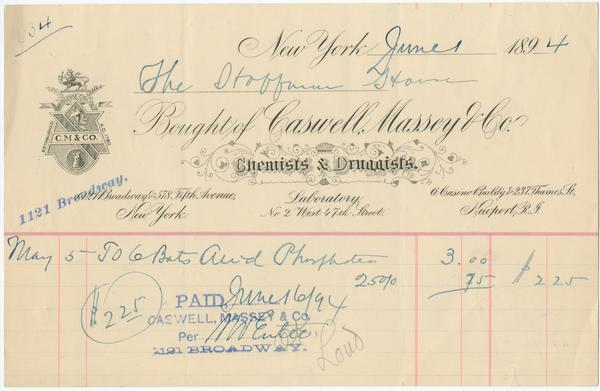 34
New York June 1 1894
The Hoffman House
Bought of Caswell, Massey & Co.
ESTABLISHED A.D. 1780
C.M & CO.
Chemists & Druggists.
1121 Broadway & 578 Fifth Avenue,
New York.
1121 Broadway.
Laboratory,
No 2 West 47th Street.
6 Casino Building & 237 Thames St.
Newport, R.I.
May 5 - To 6 Bots Acid Phosphates 3.00
25% 75 $2 25
$2 25
PAID June 16/94
CASWELL, MASSEY & CO.
Per
1121 BROADWAY.